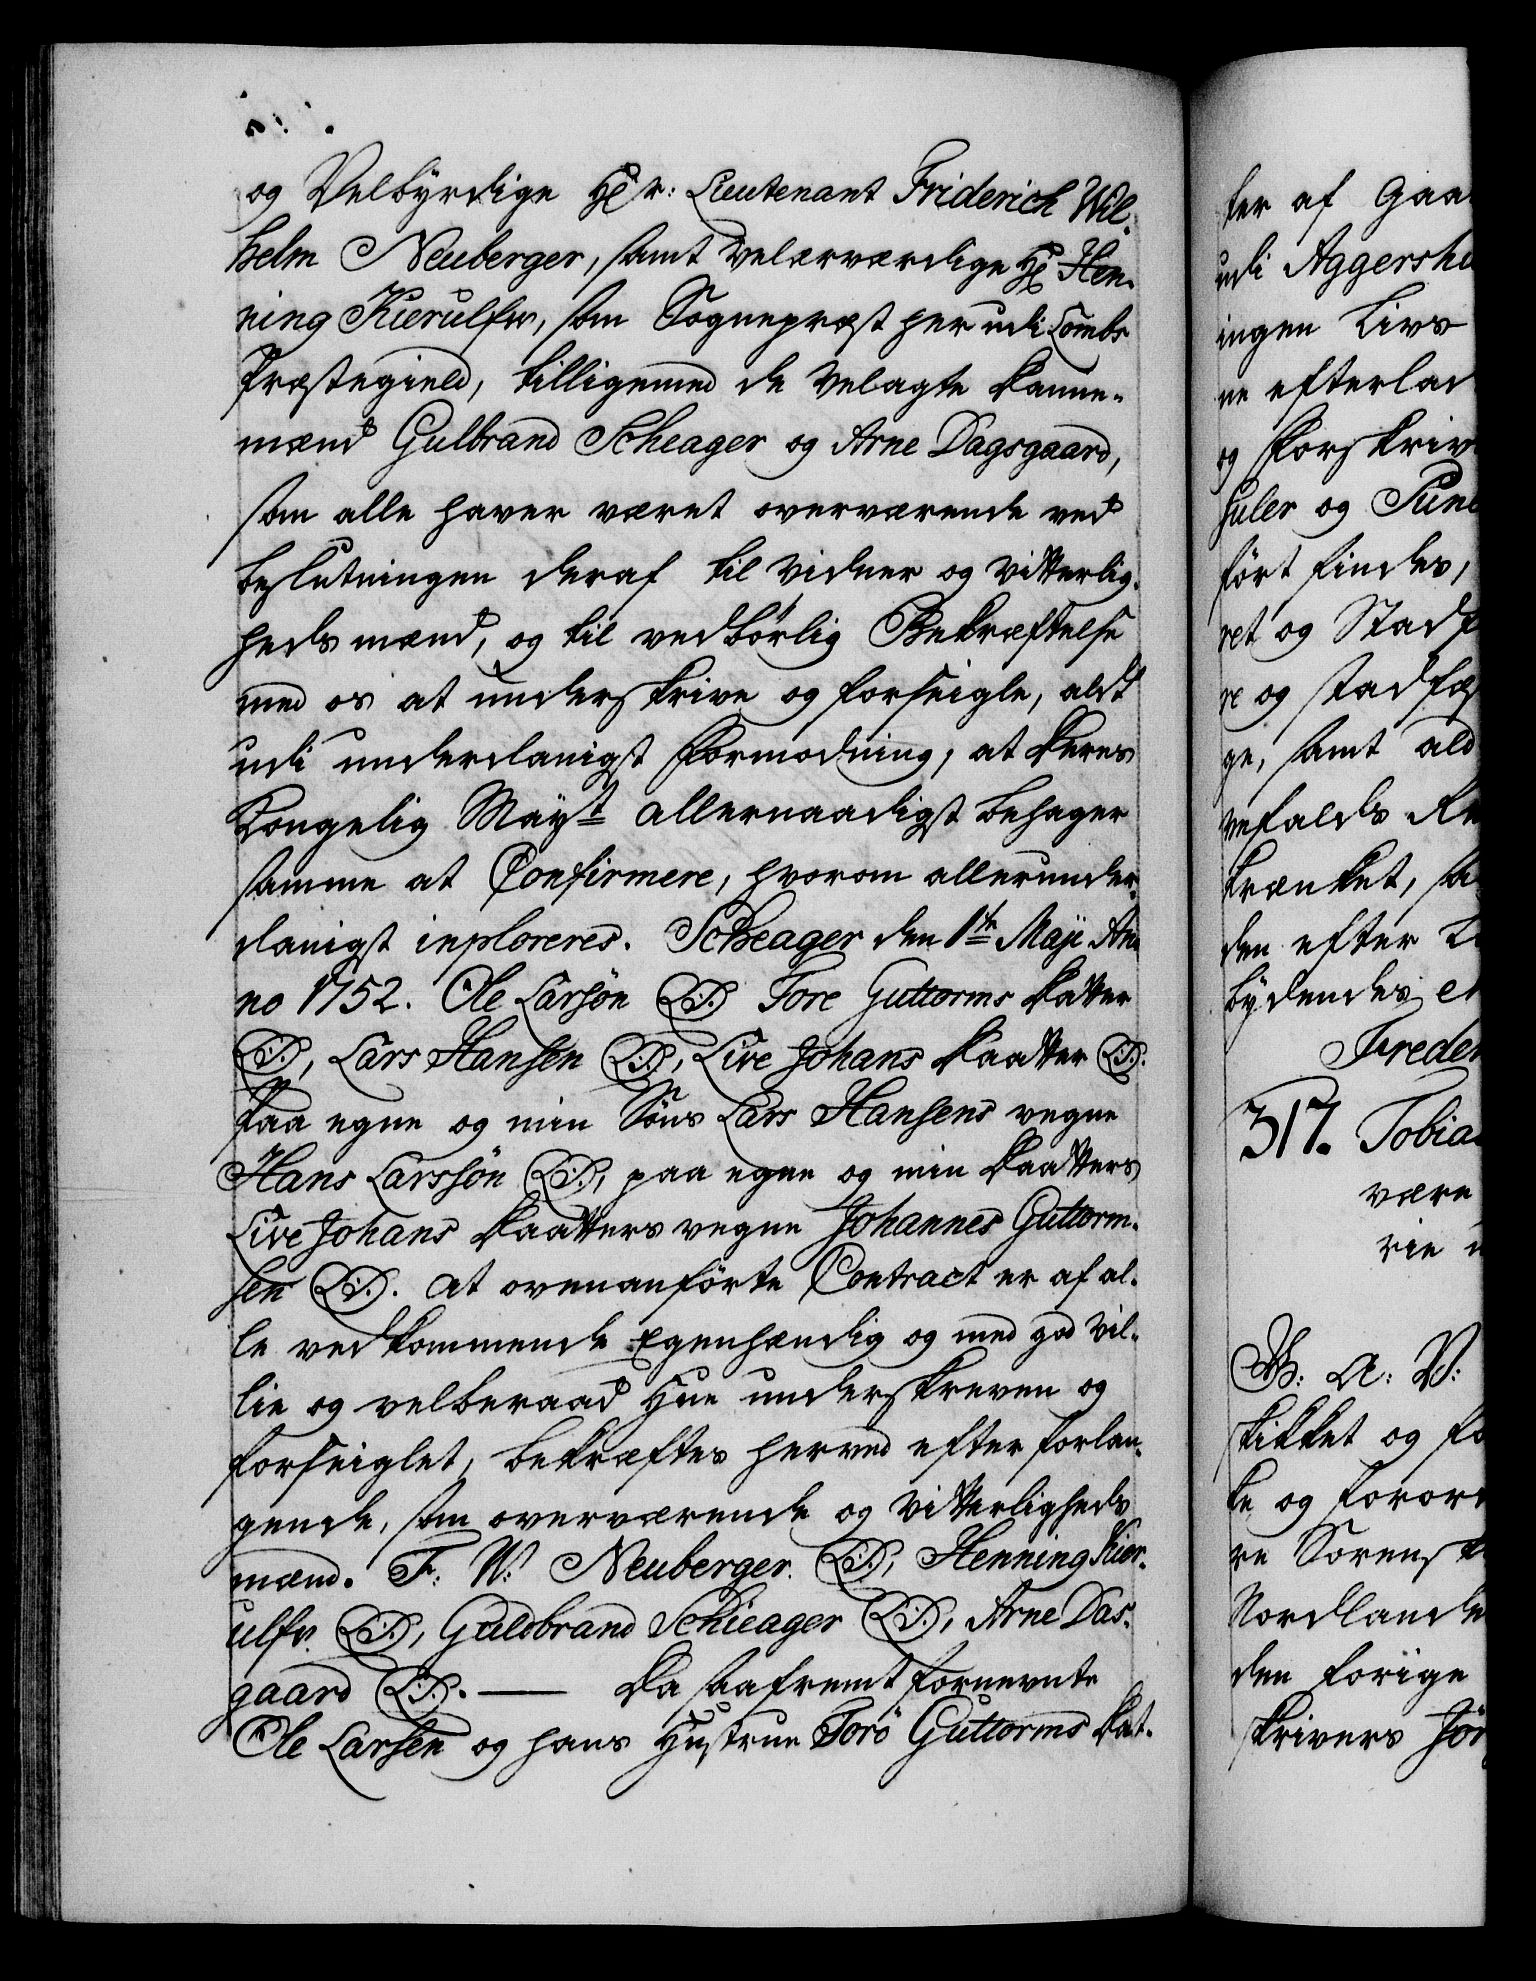 og Velbyrdige Hr: Lieutenant Friderich Wil-
helm Neuberger, samt Velærværdige Hr Hen-
ning Kierulfw, som Sognepræst her udi Lombs
Præstegield, tilligemed de Velagte Danne-
mænd Gulbrand Scheager og Arne Dagsgaard,
som alle haver været overværende ved
beslutningen deraf til Vidner og Vitterlig-
heds mænd, og til vedbørlig Bekræftelse
med os at underskrive og forseigle, aldt
udi underdanigst Formodning, at Deres
Kongelig Mayt allernaadigst behager
samme at Confirmere, hvorom allerunder-
danigst inploreres. Scheager den 1te Maji An-
no 1752. Ole Larsøn (L.S.) Tore Guttorms Datter
(L.S.), Lars Hansen (L.S.), Live Johans Daatter (L.S.)
Paa egne og min Søns Lars Hansens vegne
Hans Larssøn (L.S.), paa egne og min Daatters
Live Johans Daatters vegne Johannes Guttorm-
sen (L.S.). at ovenanførte Contract er af al-
le vedkommende Egenhændig og med god Vil-
lie og velberaad Hue underskreven og
forseiglet, bekræftes herved efter forlan-
gende, som overværende og Vitterligheds
mænd. F: W: Neuberger. (L.S.), Henning Kier-
ulfw. (L.S.), Guldbrand Schieager (L.S.), Arne Das-
gaard (L.S.). — Da saafremt fornevnte
Ole Larsen og hans Hustrue Torø Guttorms Dat-
ter af Gaa
udi Aggershu
ingen Livs
ne efterlad
og forskriv
huler og Pun
ført findes,
ret og Stadf
re og stadfæs
ge, samt ald
vefalds Re
krænket, sa
den efter L
bydendes et
Freder
317. Tobia
være
rie
G: A: V:
skikket og fo
te og foror
re Sorensk
Nordlande
den forige
skrivers Jør